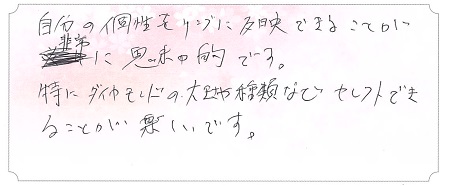 自分の個性をリングに反映できることが
非常に魅力的です。
特にダイヤモンドの大きさや種類などセレクトでき
ることが楽しいです。